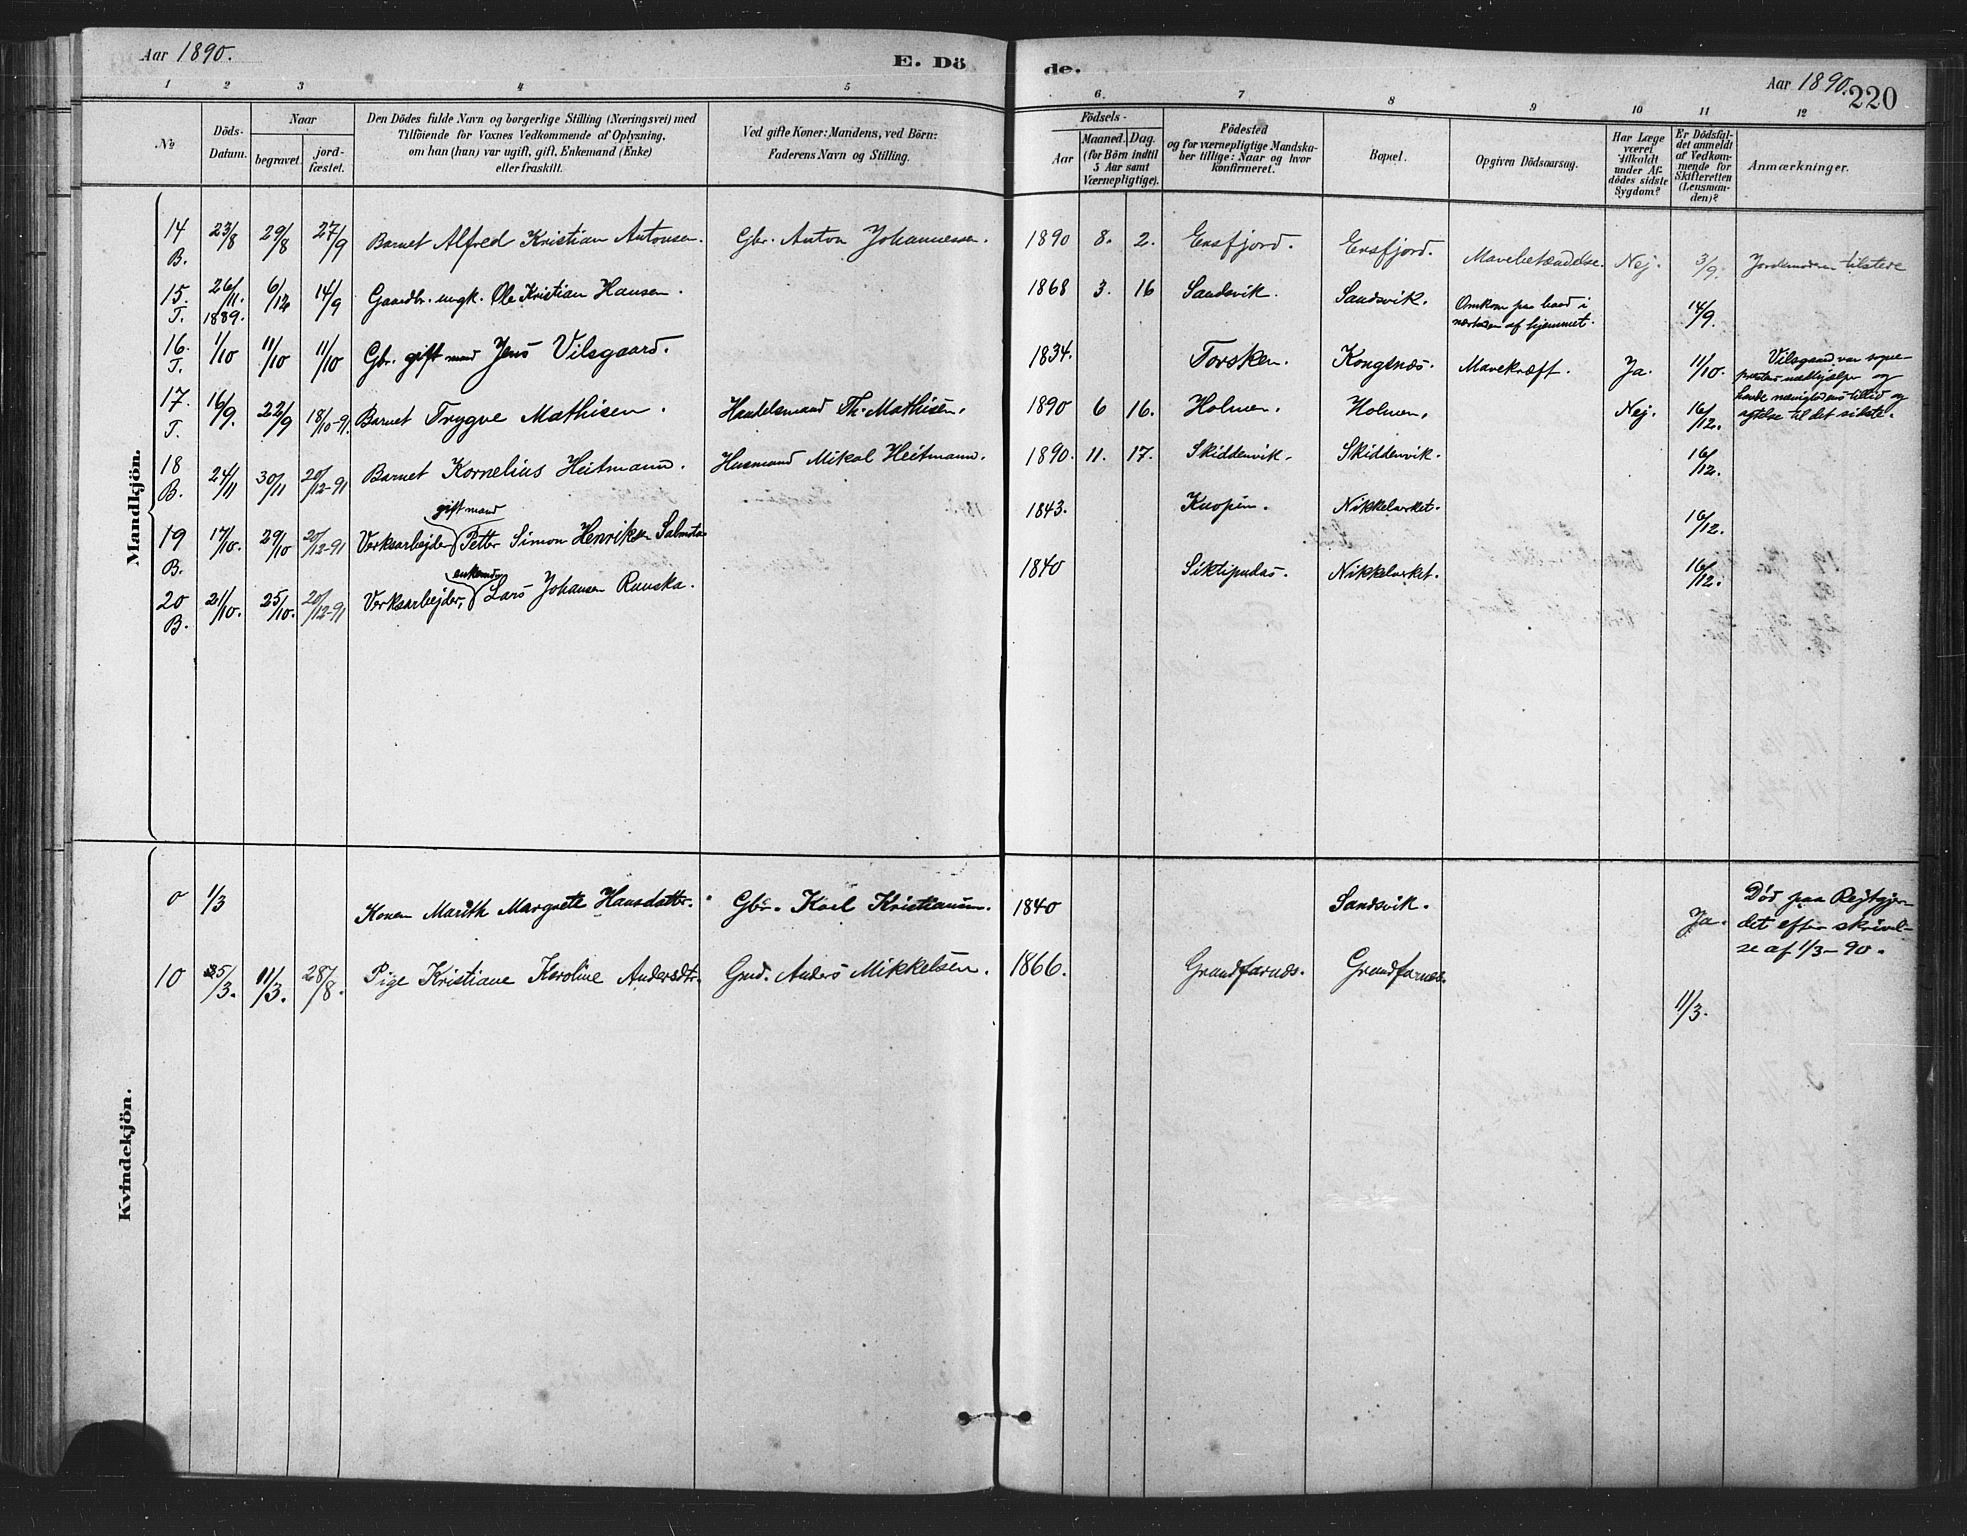 Aar 1890.
E. Dö
de.
Aar 1890.
220
1 2 3 4 5 6. 7 8 9 10 11 12
№
Döds-
Datum.
Naar
begravet.
jord-
fæstet.
Den Dödes fulde Navn og borgerlige Stilling (Næringsvei) med
Tilföiende for Voxnes Vedkommende af Oplysning,
om han (hun) var ugift, gift, Enkemand (Enke)
eller fraskilt.
Ved gifte Koner: Mandens, ved Börn:
Faderens Navn og Stilling.
Födsels-
Aar
Maaned. Dag.
(for Börn indtil
5 Aar samt
Værnepligtige).
Födested
og for værnepligtige Mandska-
ber tillige: Naar og hvor
konfirmeret.
Bopæl.
Opgiven Dödsaarsag.
Har Læge
været
tilkaldt
under Af-
dödes sidste
Sygdom?
Er Dödsfal-
det anmeldt
af Vedkom-
mende for
Skifteretten
(Lensman-
den)?
Anmærkninger.
Mandkjön.
14 B. 23/8 29/8 27/9 Barnet Alfred Kristian Antonsen. Gbr. Anton Johannessen. 1890 8. 2. Ersfjord. Ersfjord. Mavebetændelse. Nej. 3/9. Jordemoderen tilstede
15. T. 26/11. 1889. 6/12 14/9 Gaardbr. ungk. Ole Kristian Hansen. 1868 3. 16 Sandsvik. Sandsvik. Omkom paa baad i
nærheden af hjemmet. 14/9.
16. T. 1/10 11/10 11/10 Gbr. gift mand Jens Vilsgaard. 1834. Torsken. Kongsnæs. Mavekræft. Ja. 11/10. Vilsgaard var sogne-
prestens medhjælper og
havde menighedens tillid og
agtelse til det sidste.
17. T. 16/9. 22/9 18/10-91. Barnet Trygve Mathisen. Handelsmand Th. Mathisen. 1890 6 16. Holmen. Holmen. Nej. 16/12.
18 B. 24/11 30/11 20/12-91 Barnet Kornelius Heitmann. Husmand Mikal Heitmann. 1890. 11. 17. Skiddenvik. Skiddenvik. 16/12.
gift mand
19 B. 17/10. 29/10 20/12-91 Verksarbejder Petter Simon Henriksen 1843. Kuopin. Nikkelverket. 16/12.
enkemd
20 B. 21/10. 25/10. 20/12-91 Verksarbejder, Lars Johansen Ranska. 1840 Nikkelverket. 16/12.
Kvindekjön.
0 1/3 Konen Marith Margrete Hansdatter. Gbr. Karl Kristiansen. 1840 Sandsvik. Ja. Död paa Rejtgjer-
det efter skrivel-
se af 1/3-90.
10 5/3. 11/3. 28/8. Pige Kristiane Karoline Andersdtr. Gmd. Anders Mikkelsen. 1866. Grundfarnæs. Grundfarnæs. 11/3.